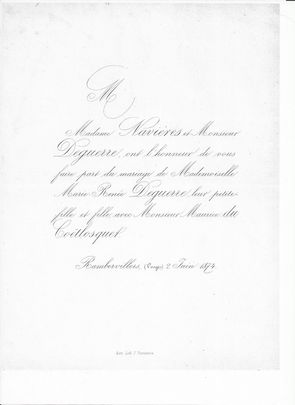 M
Madame Navières et Monsieur
Deguerre, ont l'honneur de vous
faire part du mariage de Mademoiselle
Marie Renée Deguerre, leur petite
fille et fille, avec Monsieur Maurice du
Coëtlosquet.
Rambervillers, 2 Juin 1874.